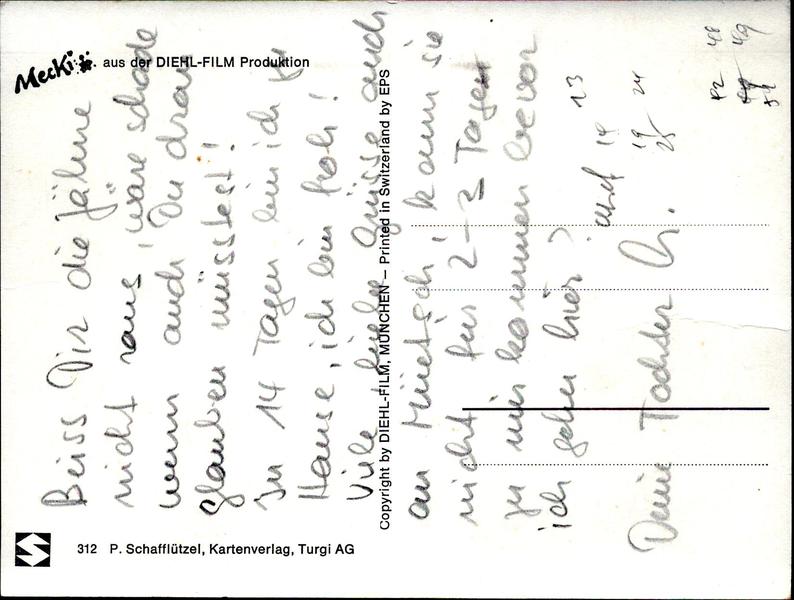 Mecki aus der DIEHL-FILM Produktion
Beiss Dir die Zähne
nicht raus, wäre schade
wenn auch Du dran
glauben müsstest!
In 14 Tagen bin ich zu
Hause, ich bin froh!
Viele liebe Grüsse auch
an kann sie
nicht für 2-3 Tagen
zu mir kommen bevor
ich gehn hier?
Deine Tochter
13
14
19 24
25
48
42 49
Copyright by DIEHL-FILM, MÜNCHEN – Printed in Switzerland by EPS
312 P. Schafflützel, Kartenverlag, Turgi AG